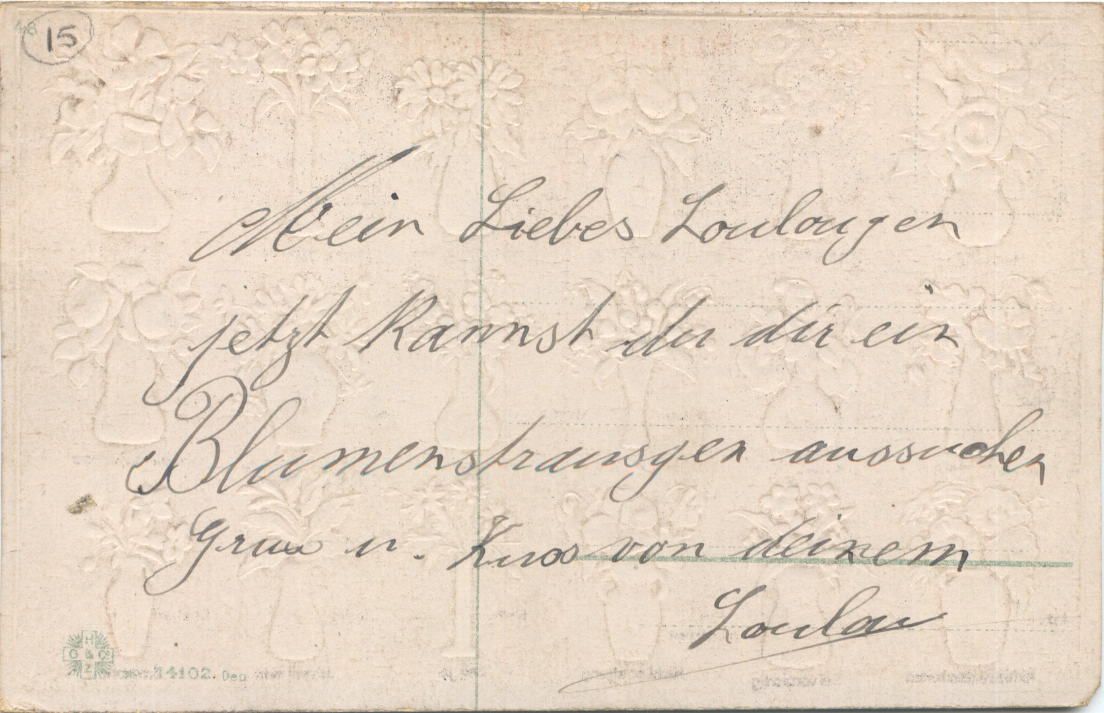 15
Mein Liebes Loulougen
jetzt kannst du dir ein
Blumenstrausgen aussuchen
Gruss u. Kuss von deinem
Loulou
H
G & Co
Z
14102. Dep